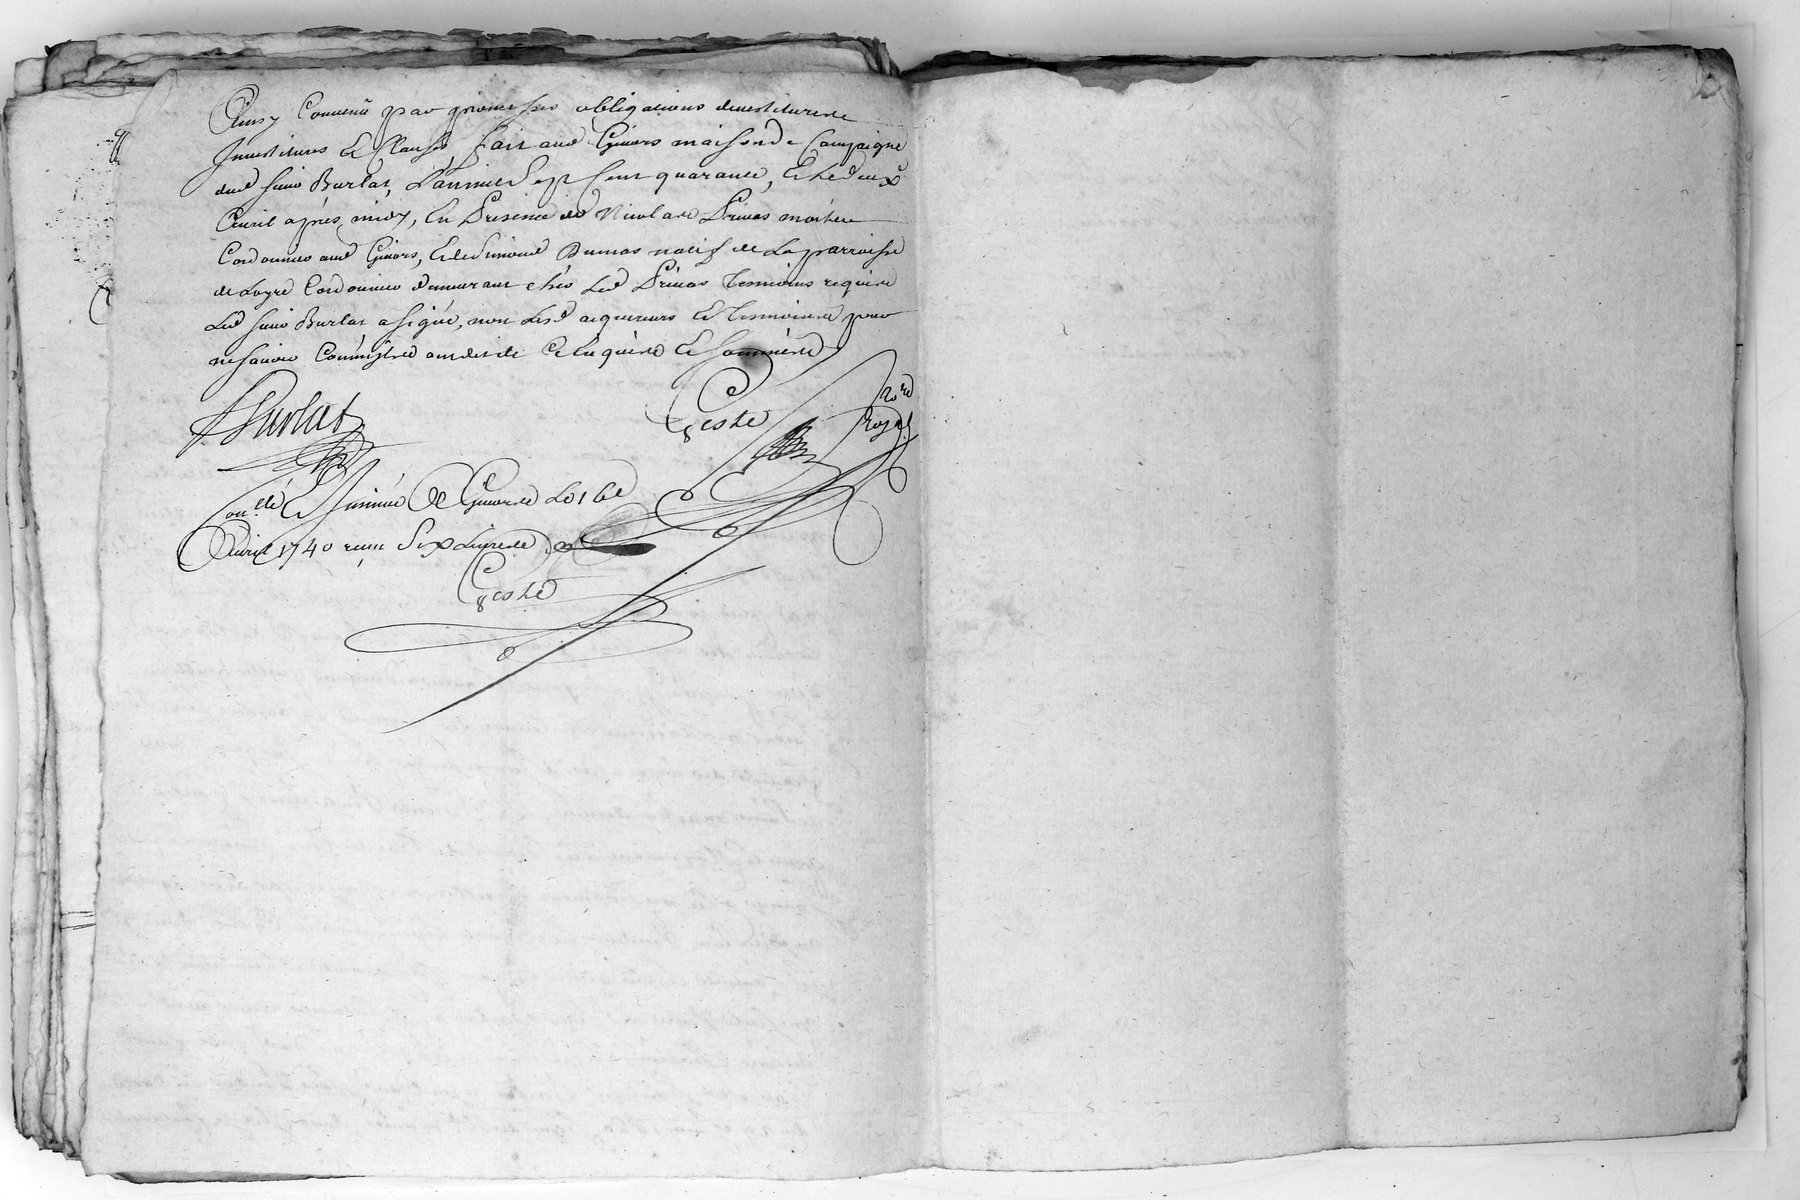 Ainsy Convenu par promesses obligations devestitures
Investitures Et Clauses, fait aud Givors maison de Campaigne
dud sieur Burlat, L'an mil Sept Cent quarante, Et le deux
Avril après midy, En Presence de Nicolas Primas maitre
Cordonnier aud Givors, Et de Simond Dumas natif de La parroisse
de Loyre Cordonnier demeurant chés Led Primas Temoins requis
Led sieur Burlat a signé, non Lesd acquereurs Et Temoins pour
ne savoir Comm̃e Ils ont dit de Ce Enquis Et Sommés
Burlat
Geste
No.re
Royal
Con.llé Et Insinué A Givors Le 16e
Avril 1740 reçu Six Livres
Geste